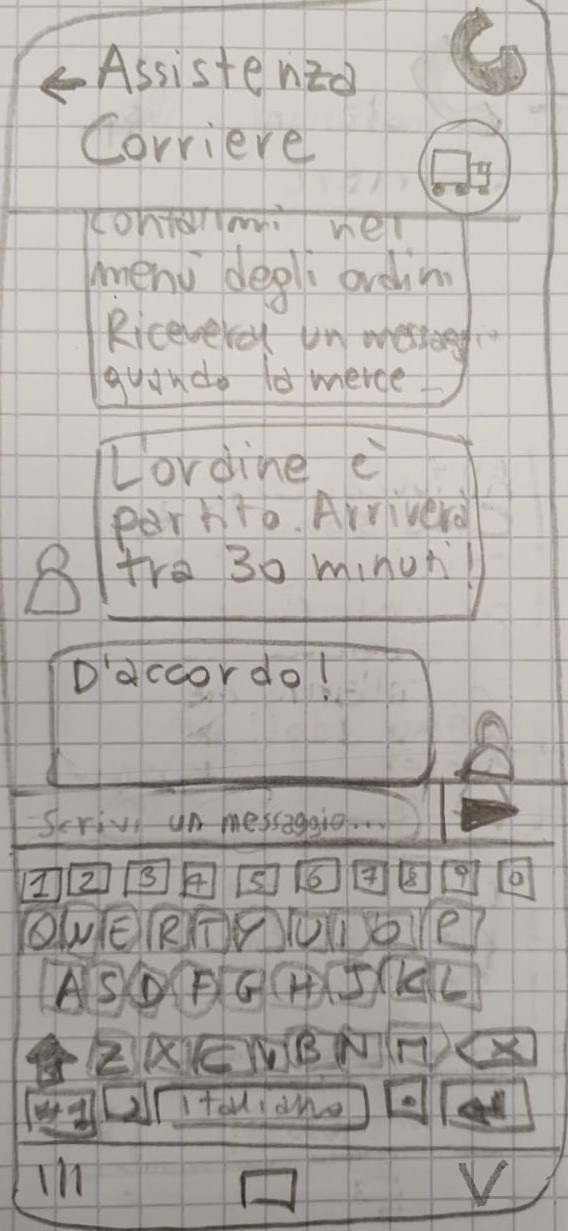 Assistenza
Corriere
contattarmi nel
menù degli ordini
Riceverai un messaggio
quando la merce
L'ordine è
partito. Arriverà
tra 30 minuti!
D'accordo!
Scrivi un messaggio...
1 2 3 4 5 6 7 8 9 0
Q W E R T Y U I O P
A S D F G H J K L
Z X C V B N M X
italiano .